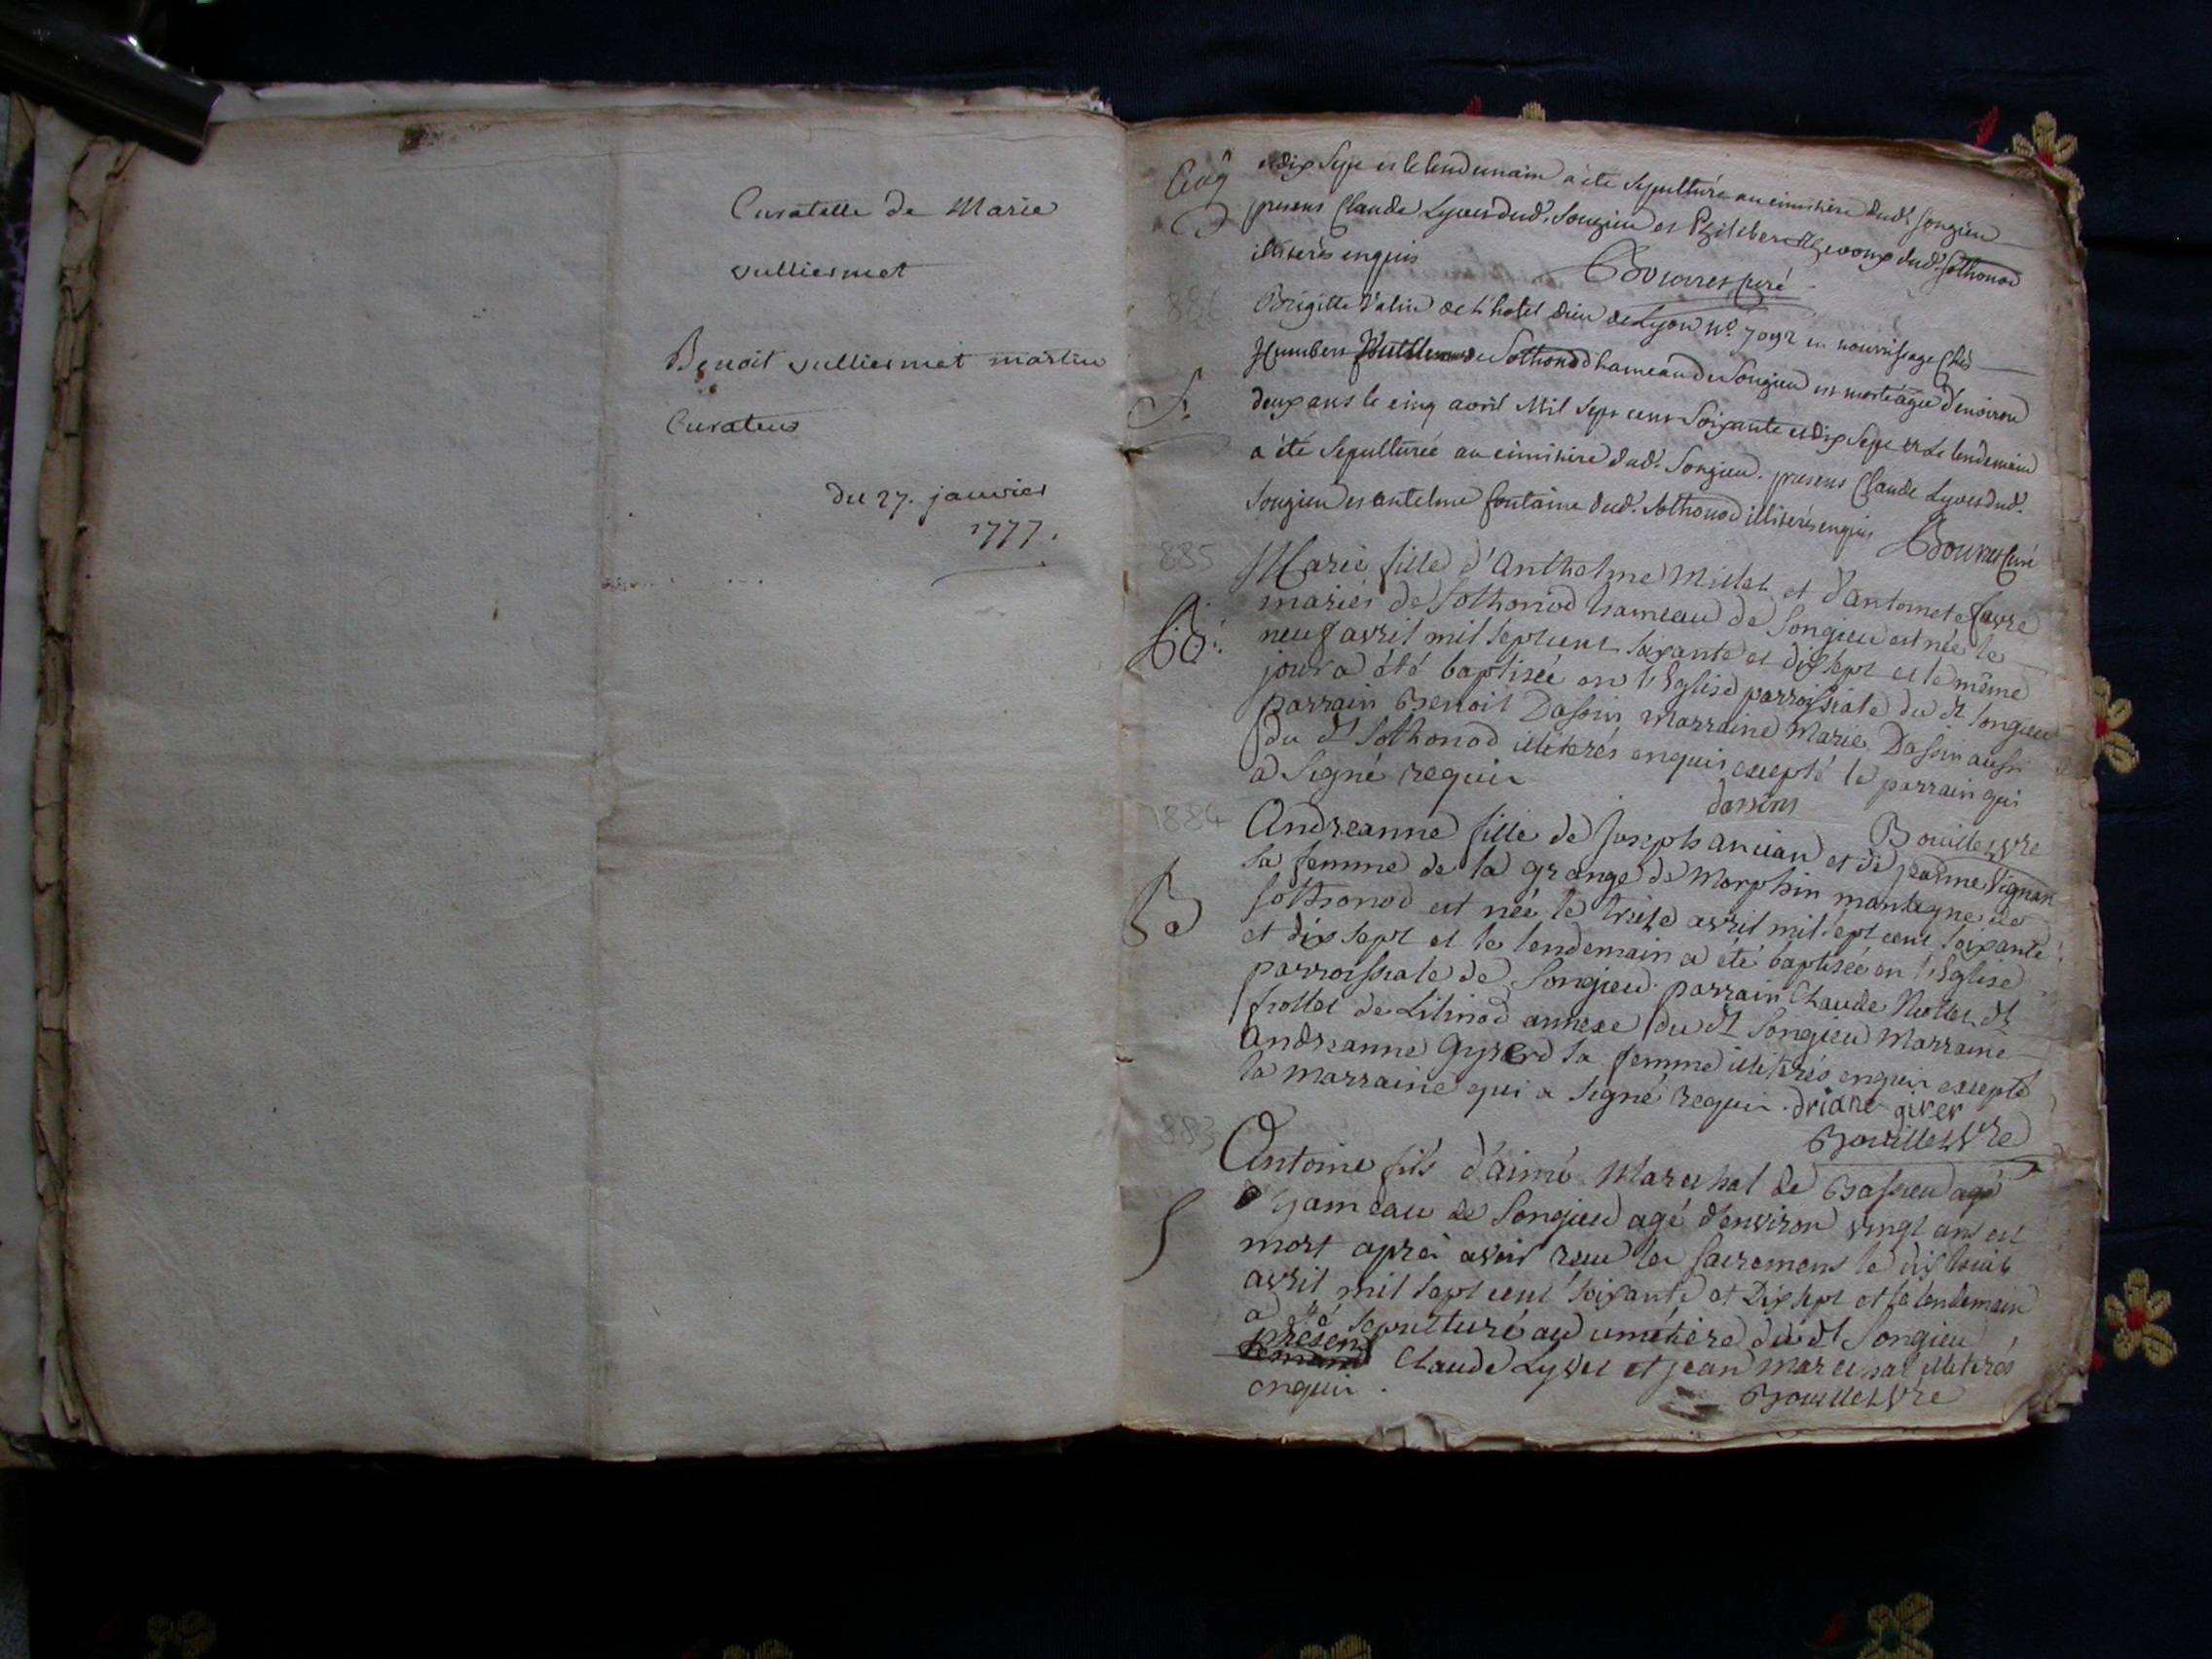 Curatelle de Marie
vulliermet
Benoit vulliermet martin
Curateur
du 27. janvier
1777.
Cinq
et dix Sept et le lendemain a été Sepulturé au cimitiere dud.t Songieu
presens Claude Lyvet dud. Songieu et Philibert dud. Sothonod
illiterés enquis
Bouvret Curé
886
Brigitte Valin de l'hotel Dieu de Lyon N.o 7092 en nourrissage chès
Humbert de Sothonod hameau de Songieu est morte agée d'environ
S.
deux ans le cinq avril Mil Sept cent Soixante et dix Sept et Le lendemain
a été Sepulturée au cimitiere dud. Songieu. presens Claude Lyvet dud.
Songieu et antelme fontaine dud. Sothonod illiterés enquis Bouvret Curé
885
Marie fille d'Anthelme Millet et d'antoinete favre
mariés de Sothonod hameau de Songieu est née le
B.
neuf avril mil Sept cent soixante et dix Sept et le même
jour a été baptisée en l'Eglise parroissiale du dt Songieu
parrain Benoit Dassin marraine Marie Dassin aussi
du dt Sothonod illiterés enquis excepté le parrain qui
a Signé requis
dassins
Bouillet vre
884
Andreanne fille de Joseph ancian et de jeanne vignan
sa femme de la grange de Morphin montagne de
B
Sothonod est née le treize avril mil sept cent soixante
et dix sept et le lendemain a été baptisée en l'Eglise
parroissiale de Songieu. parrain Claude Nollet dt
frollet de Lilinod annexe du dt Songieu Marraine
Andreanne Gyrerd sa femme illiterés enquis excepté
la marraine qui a signé requis. driane girer
Bouillet vre
883
Antoine fils d'aimé Marechal de Bassieu agé
hameau de Songieu agé d'environ vingt ans est
S
mort après avoir reçu les sacremens le dix huit
avril mil sept cent soixante et Dix sept et le lendemain
a été sepulturé au cimetière du dt Songieu
présens Claude Lyvet et jean marechal illiterés
enquis.
Bouillet vre